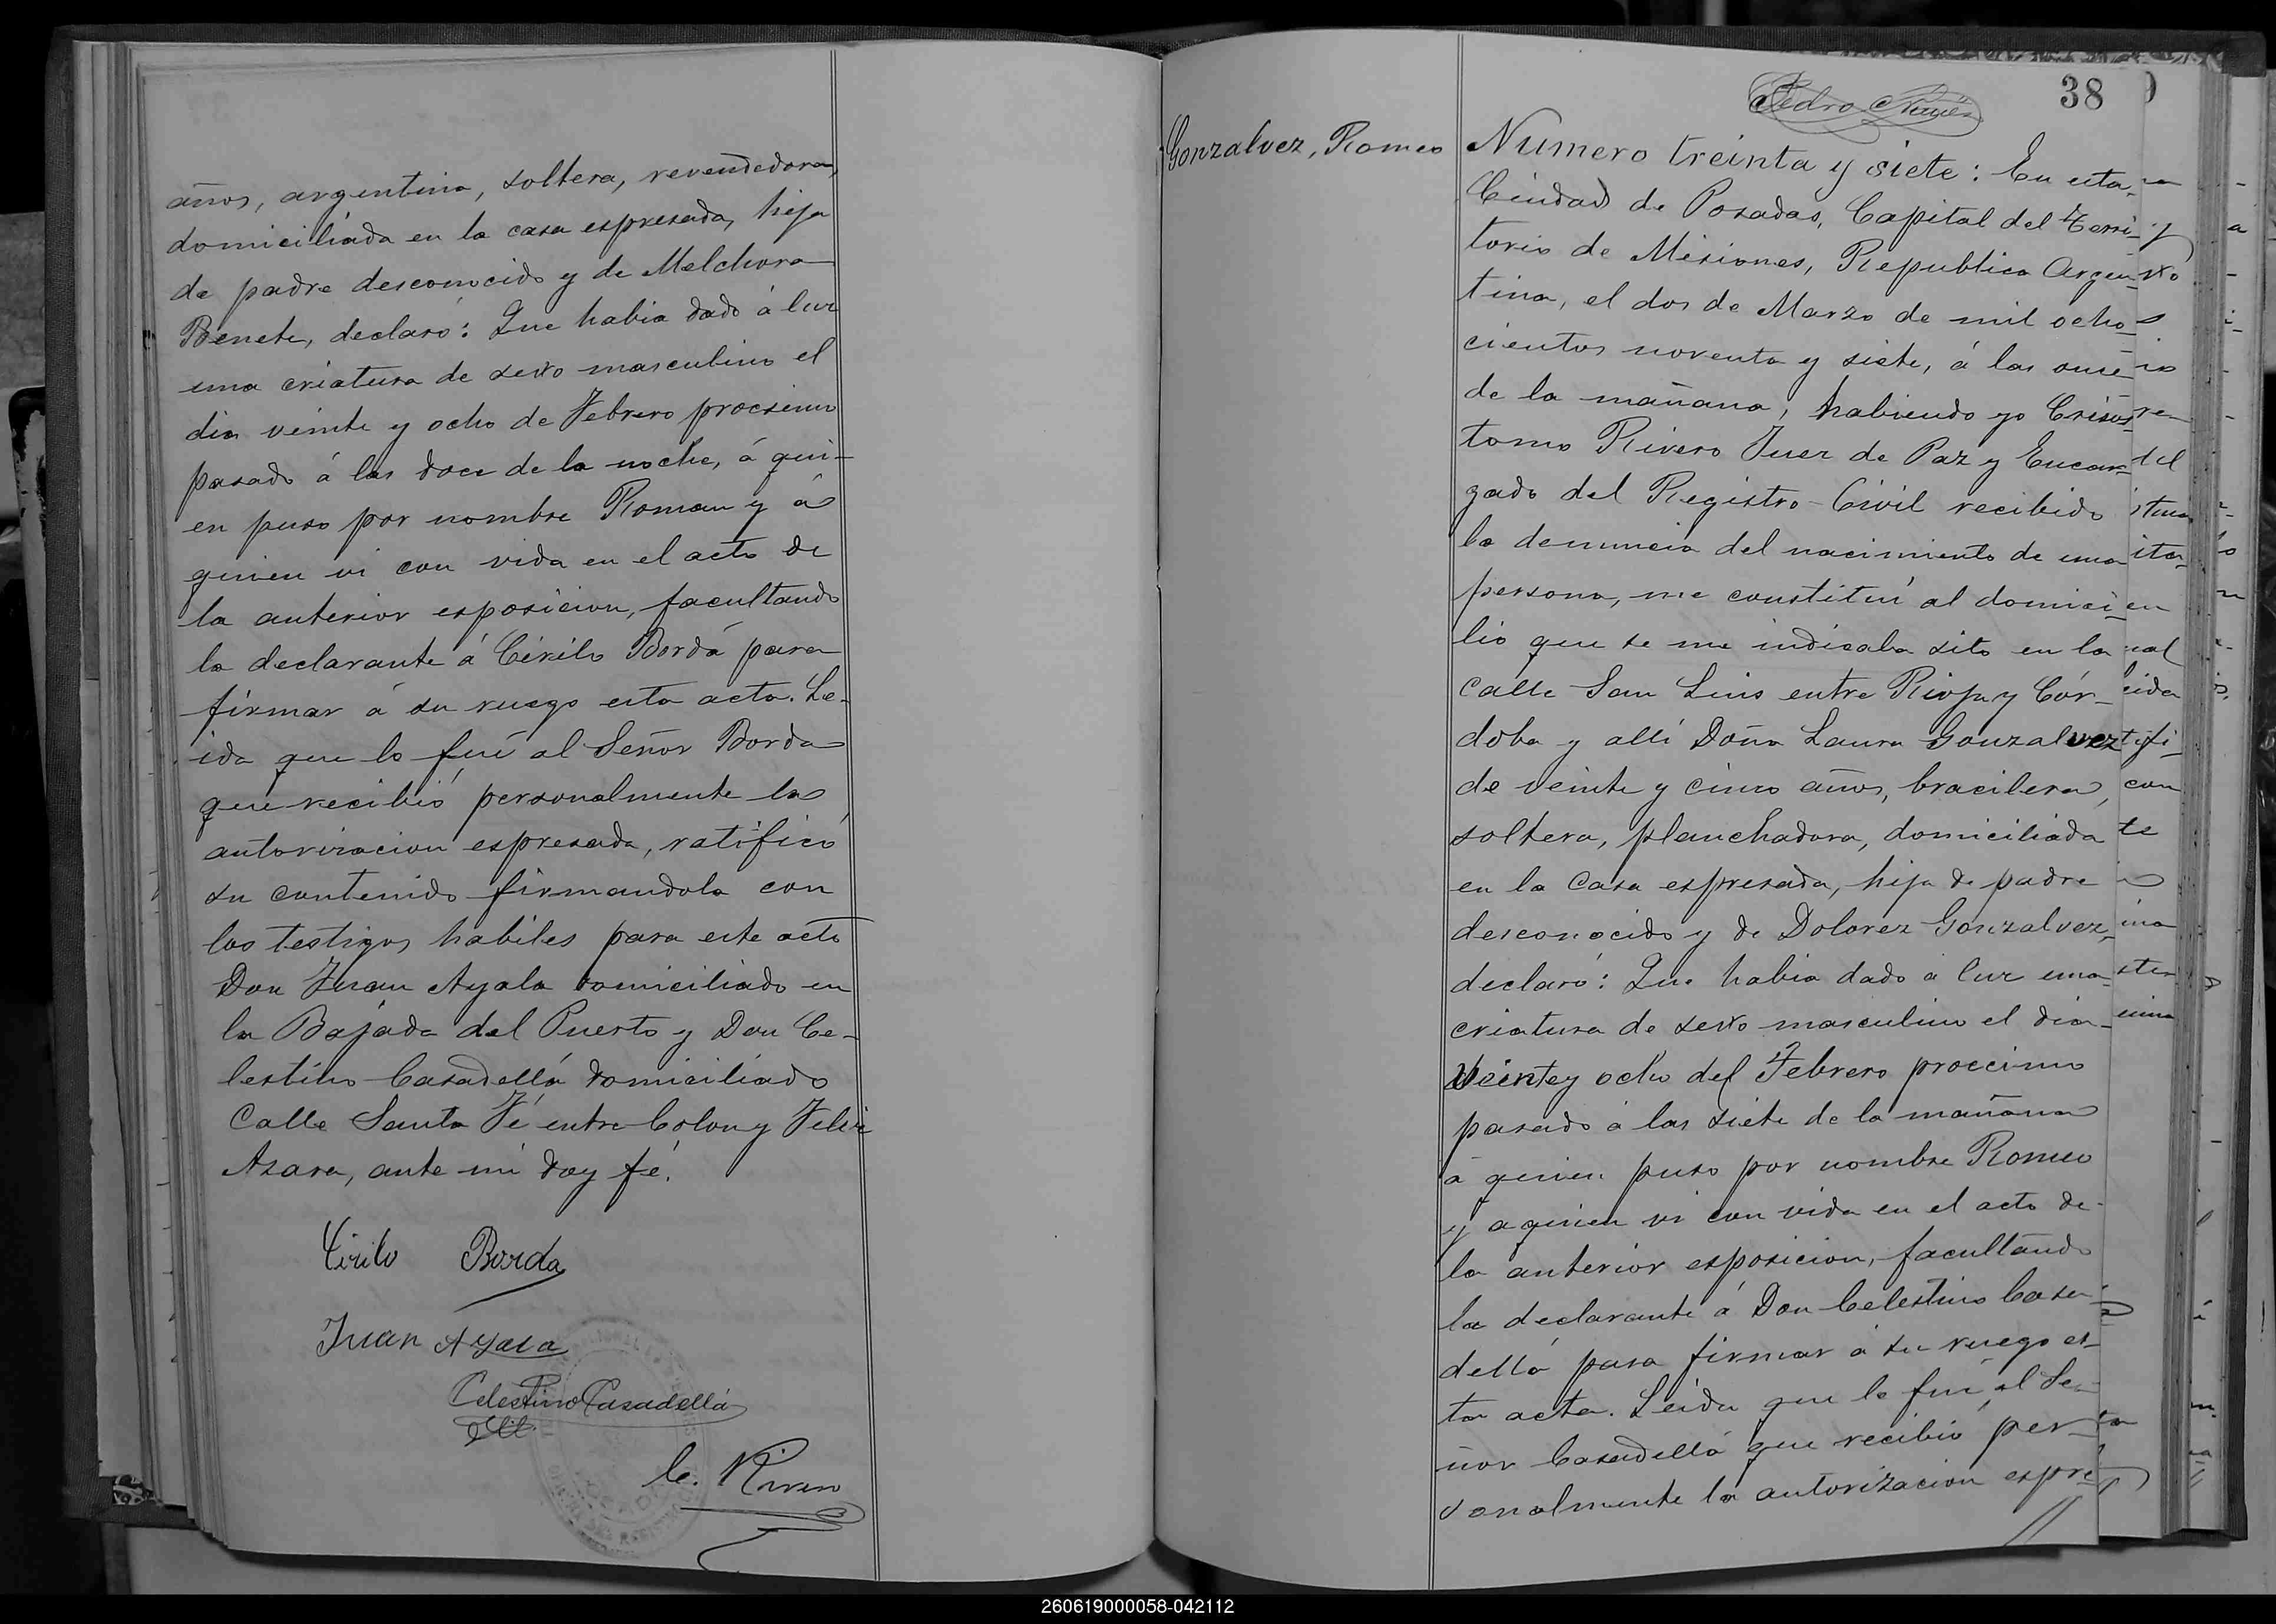 años, argentina, soltera, revendedora,
domiciliada en la casa espresada, hija
de padre desconocido y de Melchora
Benete, declaró: Que habia dado á luz
una criatura de sexo masculino el
dia veinte y ocho de Febrero procsimo
pasado á las doce de la noche, á qui-
en puso por nombre Roman y á
quien vi con vida en el acto de
la anterior esposicion, facultando
la declarante á Cirilo Bordá para
firmar á su ruego esta acta. Le-
ida que lo fué al Señor Borda
que recibió personalmente la
autorizacion espresada, ratificó
su contenido firmandola con
los testigos habiles para este acto
Don Juan Ayala domiciliado en
la Bajada del Puerto y Don Ce-
lestino Casadellá domiciliado
Calle Santa Fé entre Colon y Felix
Azara, ante mi doy fé.
Cirilo Borda
Juan Ayala
Celestino Casadellá
C. Rivero
38
Pedro
Gonzalvez, Romeo
Numero treinta y siete: En esta
Ciudad de Posadas, Capital del Terri-
torio de Misiones, Republica Argen-
tina, el dos de Marzo de mil ocho-
cientos noventa y siete, á las onse
de la mañana, habiendo yo Crisos-
tomo Rivero Juez de Paz y Encar-
gado del Registro-Civil recibido
la denuncia del nacimiento de una
persona, me constituí al domici-
lio que se me indicaba sito en la
calle San Luis entre Rioja y Cór-
doba y allí Doña Laura Gonzalvez
de veinte y cinco años, bracilera,
soltera, planchadora, domiciliada
en la Casa espresada, hija de padre
desconocido y de Dolorez Gonzalvez,
declaró: Que habia dado a luz una
criatura de sexo masculino el dia
veinte y ocho del Febrero proccimo
pasado á las siete de la mañana
á quien puso por nombre Romeo
y a quien vi con vida en el acto de
la anterior esposicion, facultando
la declarante á Don Celestino Casa-
dellá para firmar á su ruego es-
ta acta. Leida que le fué al Se-
ñor Casadellá que recibió per-
sonalmente la autorizacion espre
260619000058-042112